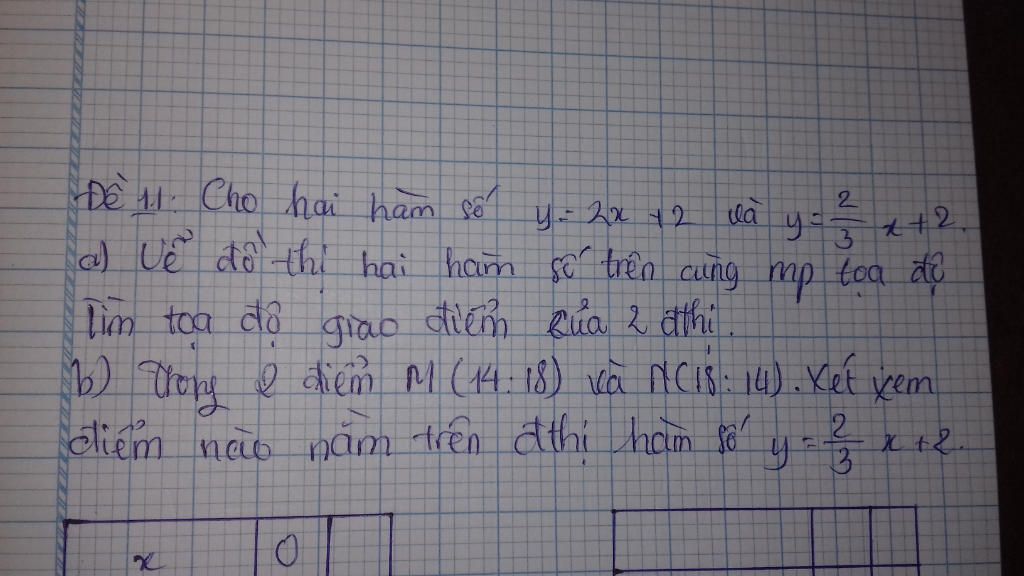 Đề 11: Cho hai hàm số y = 2x + 2 và y = 2/3 x + 2.
a) Vẽ đồ thị hai hàm số trên cùng mp tọa độ
Tìm tọa độ giao điểm của 2 đthị.
b) Trong 2 điểm M (14 ; 18) và N (18 ; 14). Xét xem
điểm nào nằm trên đthị hàm số y = 2/3 x + 2.
x 0